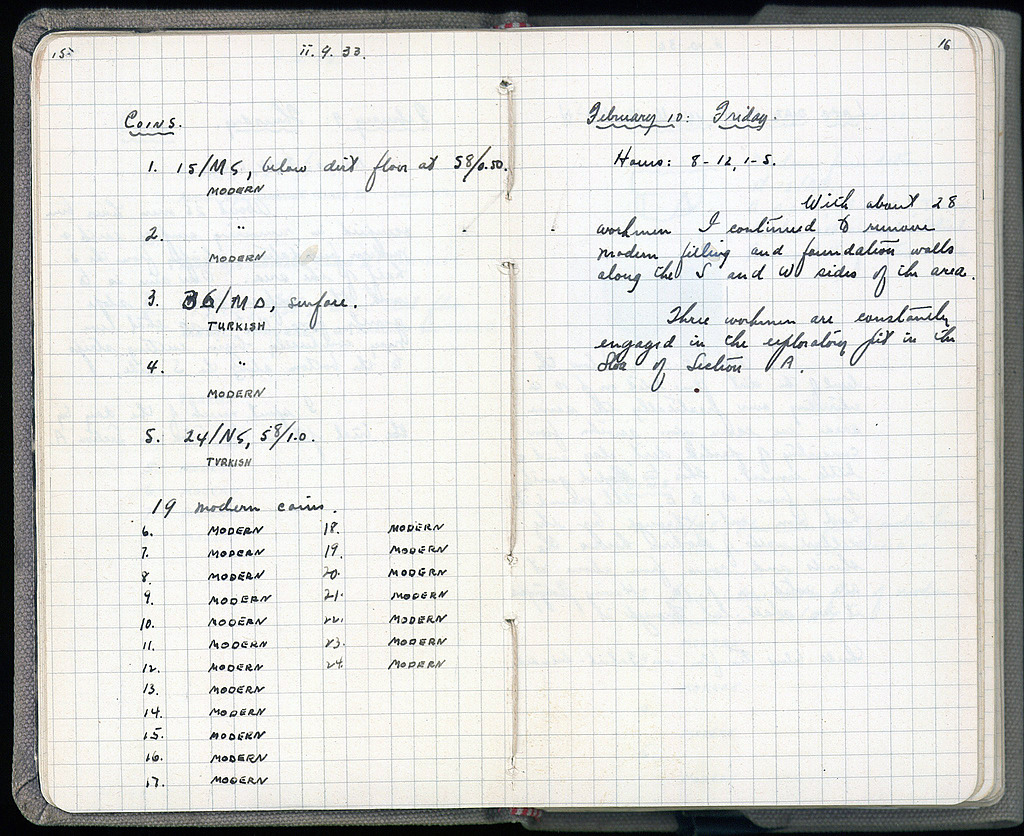 15
ii. 9. 33.
Coins.
1. 15/MS, below dirt floor at 58/0.50.
MODERN
2. "
MODERN
3. 36/MD, surface.
TURKISH
4. "
MODERN
5. 24/NS, 58/1.0.
TURKISH
19 modern coins.
6. MODERN 18. MODERN
7. MODERN 19. MODERN
8. MODERN 20. MODERN
9. MODERN 21. MODERN
10. MODERN 22. MODERN
11. MODERN 23. MODERN
12. MODERN 24. MODERN
13. MODERN
14. MODERN
15. MODERN
16. MODERN
17. MODERN
16
February 10: Friday.
Hours: 8-12, 1-5.
With about 28
workmen I continued to remove
modern filling and foundation walls
along the S and W sides of the area.
Three workmen are constantly
engaged in the exploratory pit in the
of Section A.